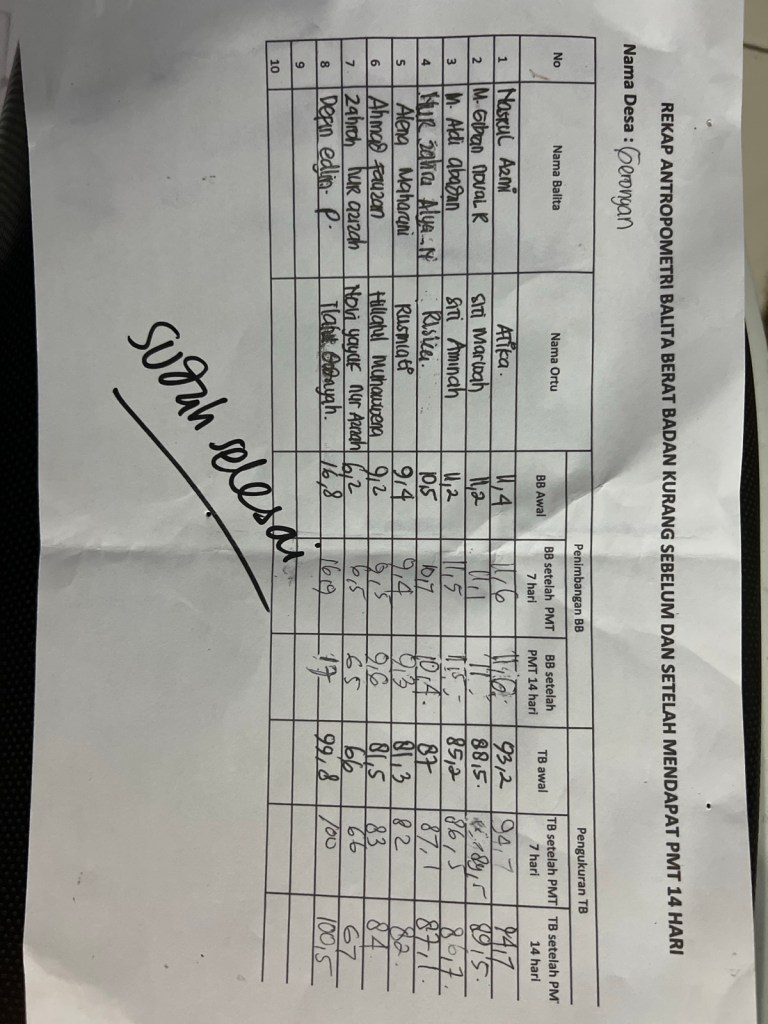 REKAP ANTROPOMETRI BALITA BERAT BADAN KURANG SEBELUM DAN SETELAH MENDAPAT PMT 14 HARI
Nama Desa : Gerongan
No Nama Balita Nama Ortu Penimbangan BB Pengukuran TB
BB Awal BB setelah PMT 7 hari BB setelah PMT 14 hari TB awal TB setelah PMT 7 hari TB setelah PM 14 hari
1 Nasrul Azmi Atika. 11,4 11,6 11,6 93,2 94,7 94,7
2 M. Giban noval R siti Marwah 11,2 11,1 88,5. 89,5 89,5.
3 M. Aldi siti Aminah 11,2 11,5 11,5 85,2 86,5 86,7.
4 Nur Alya. N 10,5 10,7 10,4. 87 87,1 87,1.
5 Alena Maharani Rusmiati 9,4 9,4 9,3 81,3 82 82.
6 Ahmad Fauzan 9,2 9,5 9,6 81,5 83 84
7 Zahroh nur azizah Novi nur Azizah 6,2 6,5 6,5 66 66 67
8 P. 16,8 16,9 17 99,8 100 100,5
9
10
sudah selesai